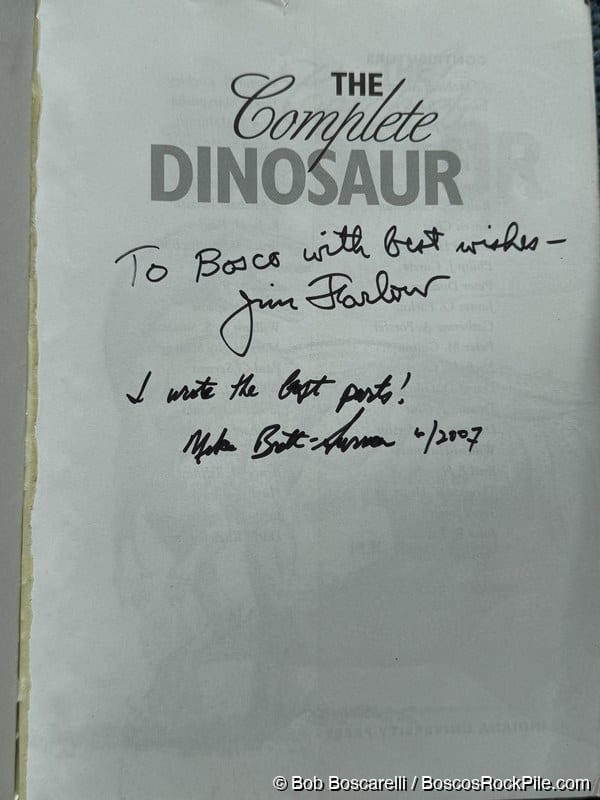 THE
Complete
DINOSAUR
To Bosco with best wishes—
Jim Farlow
I wrote the best parts!
Mike Brett-Surman 6/2007
INDIANA UNIVERSITY PRESS
© Bob Boscarelli / BoscosRockPile.com